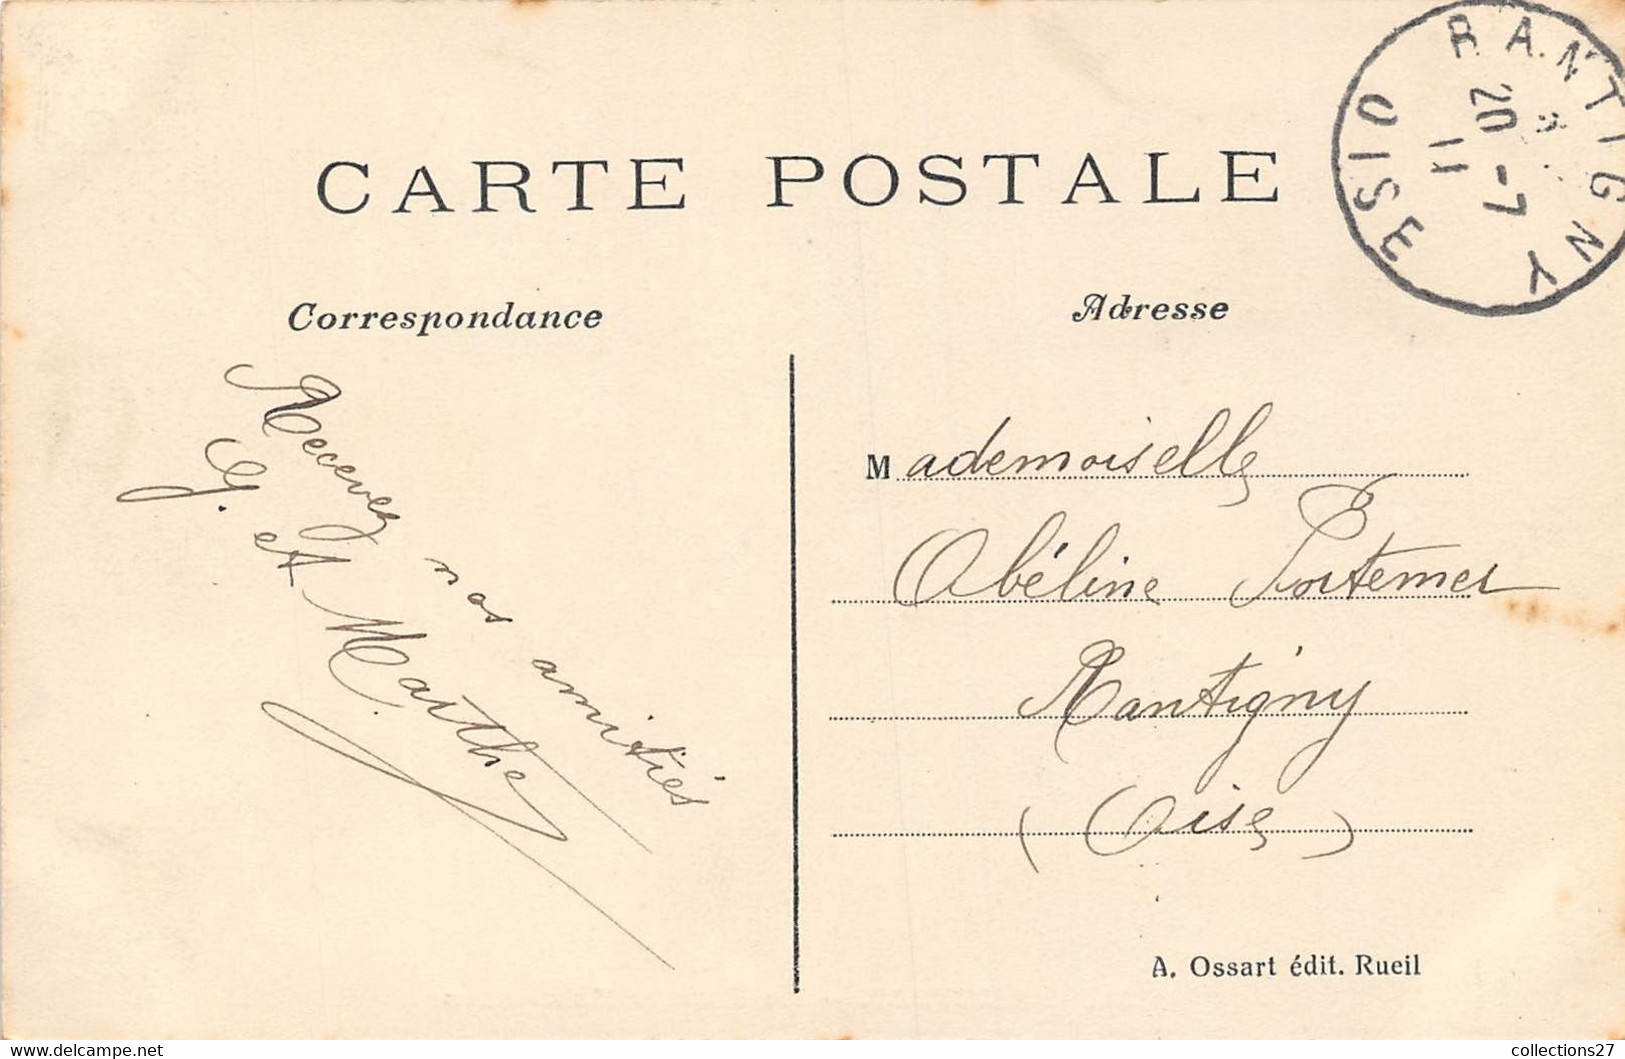 CARTE POSTALE
RANTIGNY
OISE
20 - 7
11
Correspondance
Recevez nos amitiés
G. et Marthe
Adresse
Mademoiselle
Obéline
Rantigny
(Oise)
A. Ossart édit. Rueil
collections27